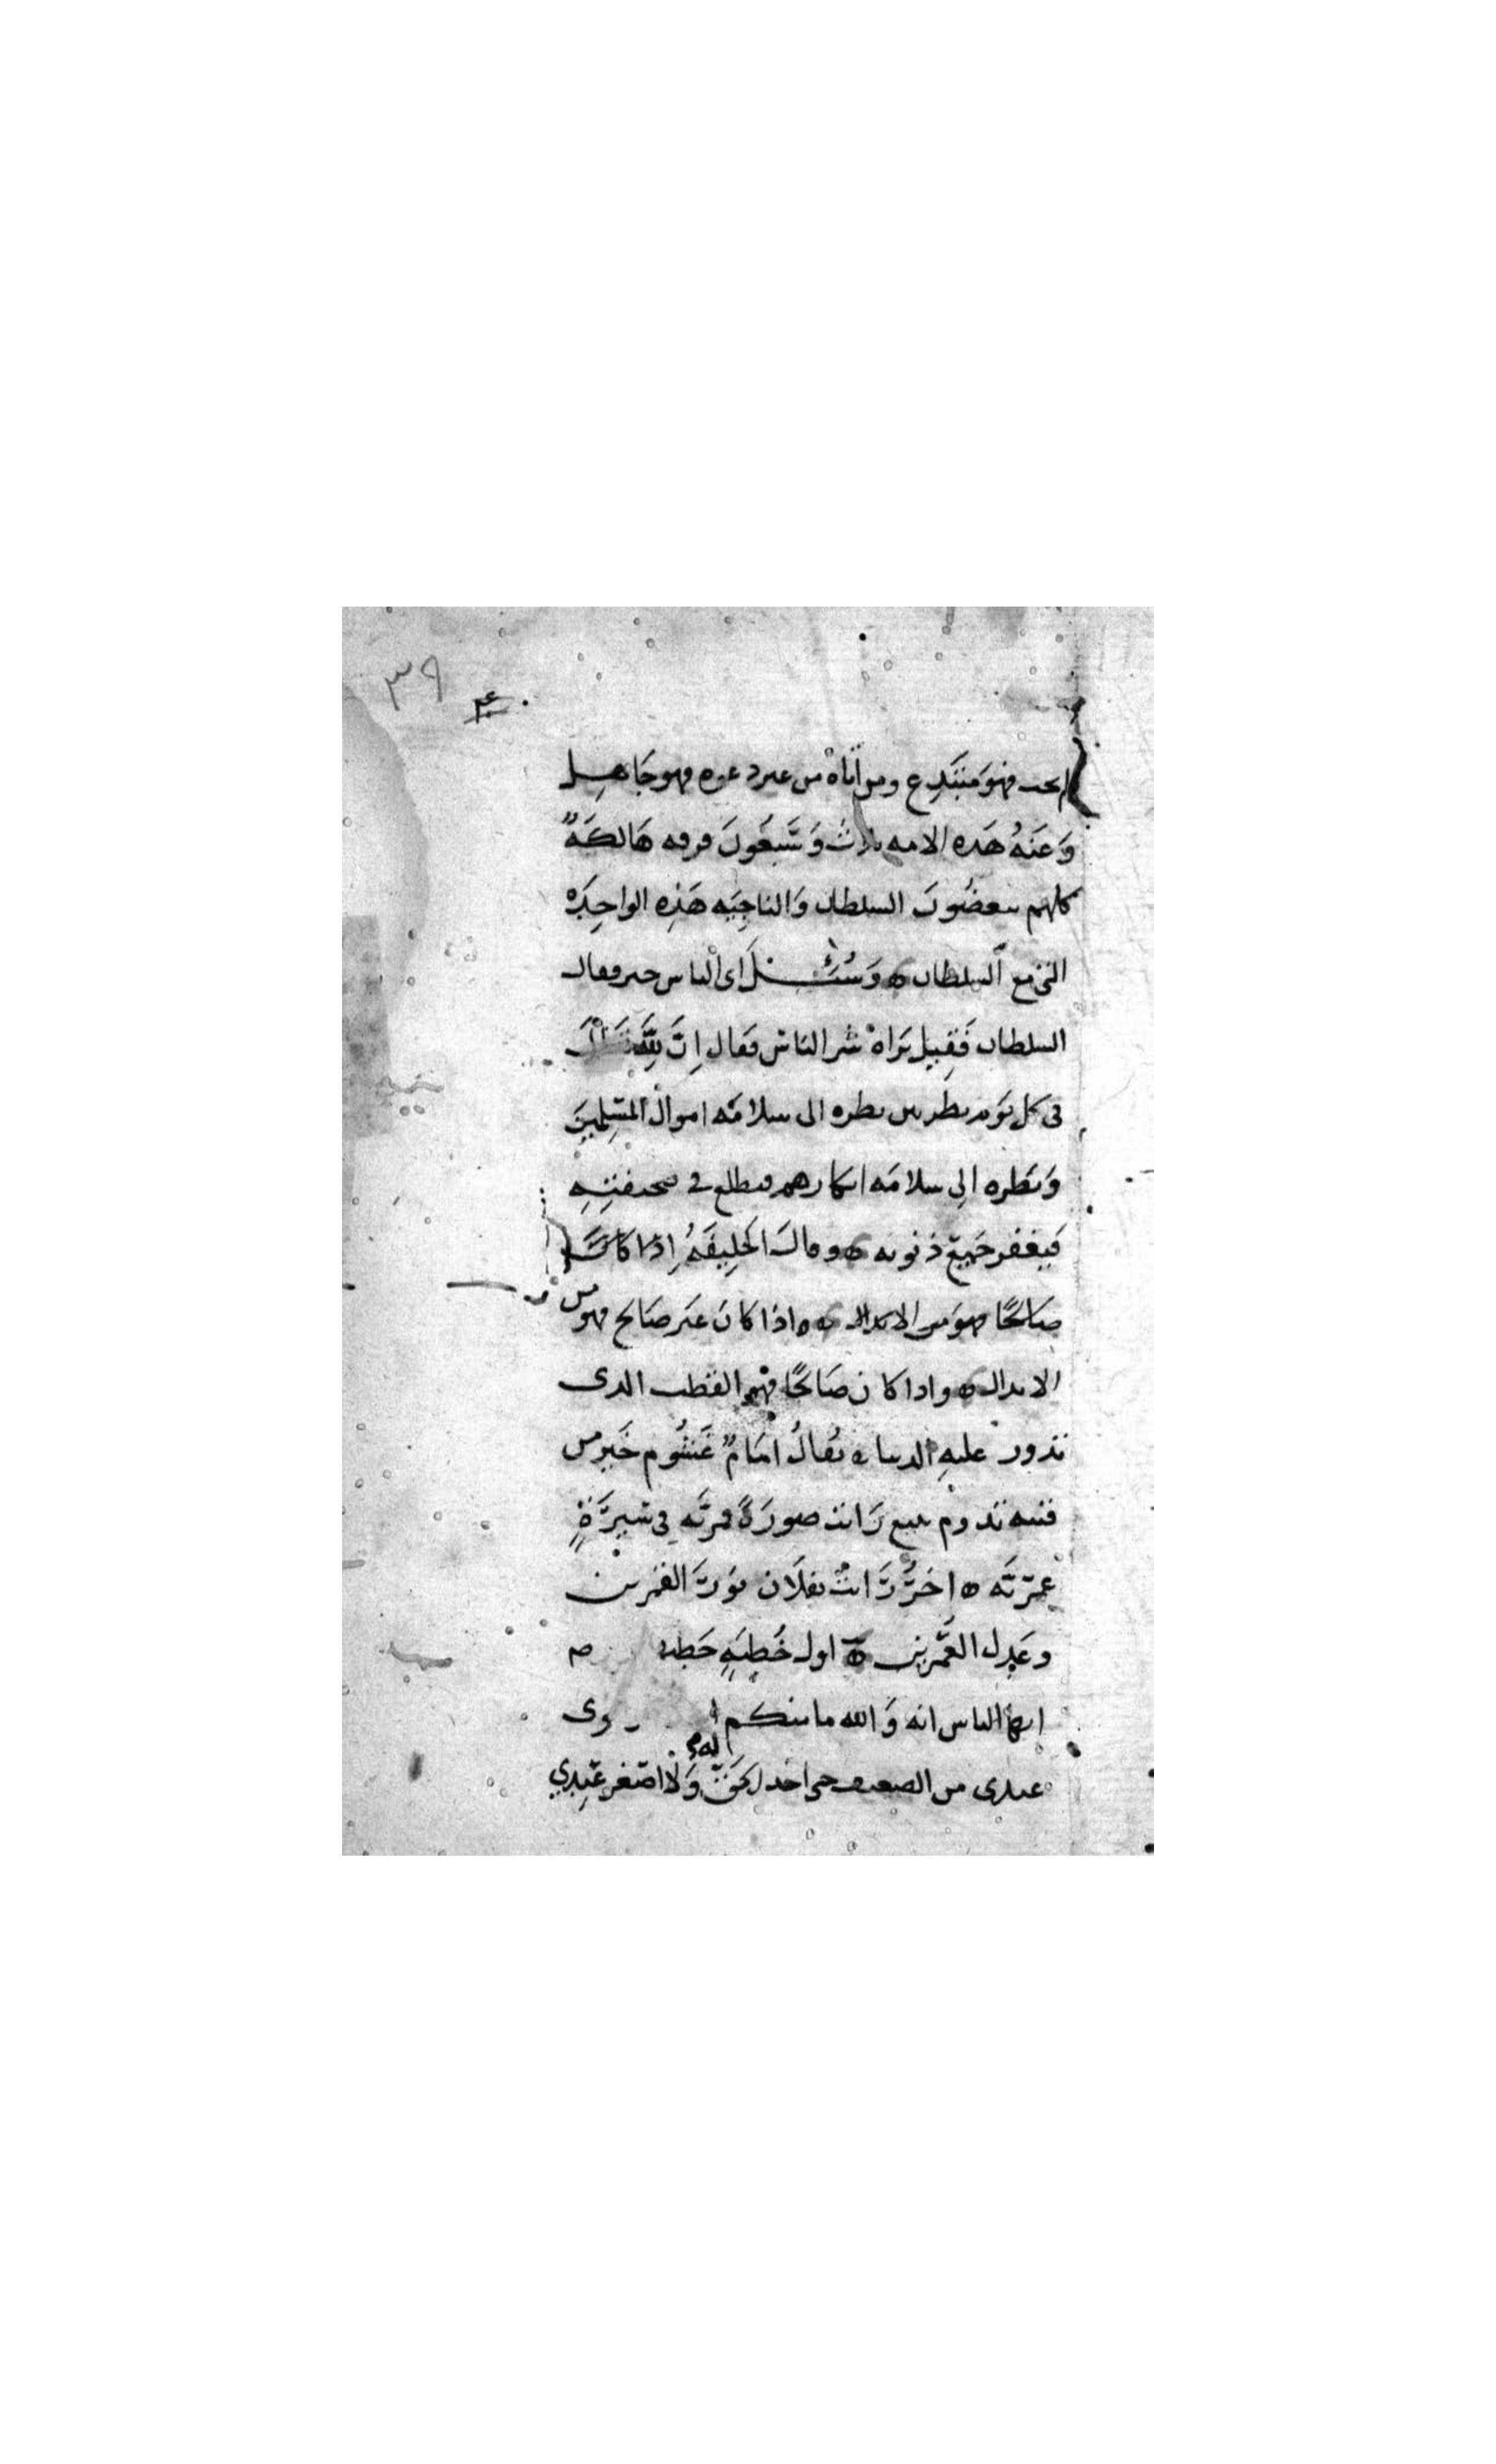 ٣٩
٣٤
يجب فهو مبتدع ومن أتاه من غير دعوه فهو جاهل
وَعَنهُ هَذه الامه ثلاث وَسَبعُونَ فرقه هَالكَةٌ
كلهم يبغضُونَ السلطان وَالناجِيَه هَذِه الواحِدَة
التي مع السلطان ه وَسُئِلَ اى الناس خير فقال
السلطان فَقِيل نَراهُ شر الناس فقال اِنَّ لِلّهِ تَعَالَى
فى كل يَوم نظرتين نظره الى سلامَة اموال المُسْلِمِينَ
وَنظره الى سلامَه ابكارهم فيطلع في صحيفتِهِ
فَيغفر جَميعَ ذنوبه ه وقالَ الخَلِيفَةُ اِذا كانَ
صَالحًا فهوَ من الابدال ه واذا كانَ غَير صَالح فهو من
الابدال ه واذا كان صَالحًا فهو القطب الذى
تدور عليهِ الدنيا ه يُقالُ امَامٌ غَشُوم خَير من
فتنه تدوم رَايت صورَةً قمريَّه فى سِيرَةٍ
عُمَريَّه ه اخَرُ رَايتُ بفلَان نورَ القمرين
وعَدل العُمَرين ه اول خُطبَهٍ خطب
ايها الناس انه وَالله ما منكم
عندى من الضعيف حتى اخذ لحَقّ وَلا اضعَف عِندِي
له